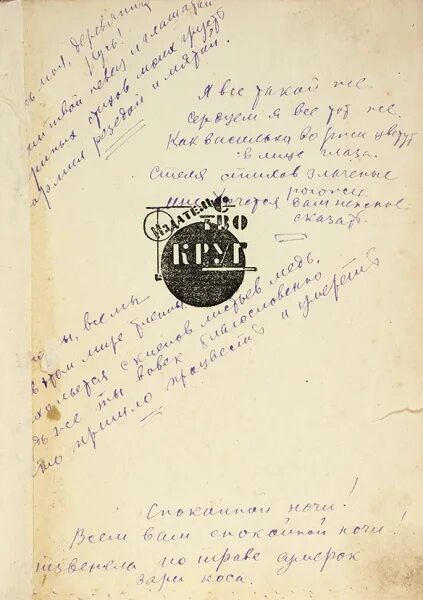 моя, деревянная
Русь!
твой певец и глашатай
стихов моих грусть
кормил резедой и мятой.
Я все такой же.
Сердцем я все тот же.
Как васильки во ржи цветут
в лице глаза.
Стеля стихов злаченые
рогожи
Мне хочется вам нежное
сказать.
Издательство
КРУГ
мы, все мы
в этом мире тленны,
льется с кленов листьев медь.
же ты вовек благословенно
пришло процвесть и умереть
Спокойной ночи!
Всем вам спокойной ночи!
звенела по траве сумерок
зари коса.